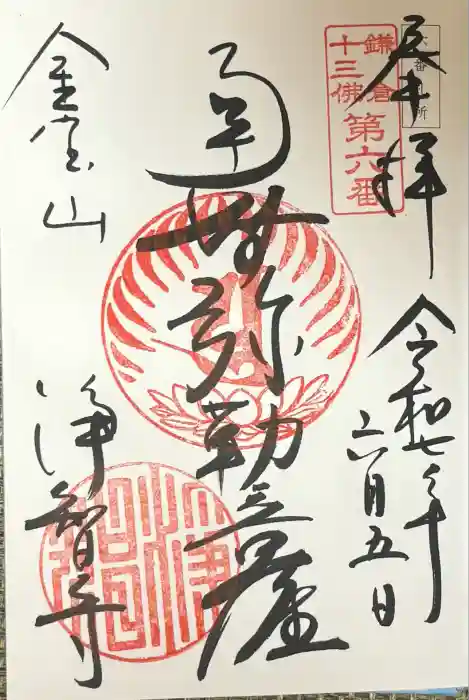 奉拝
鎌倉
十三佛
第六番
令和七年
六月五日
南無弥勒菩薩
金宝山
浄智寺